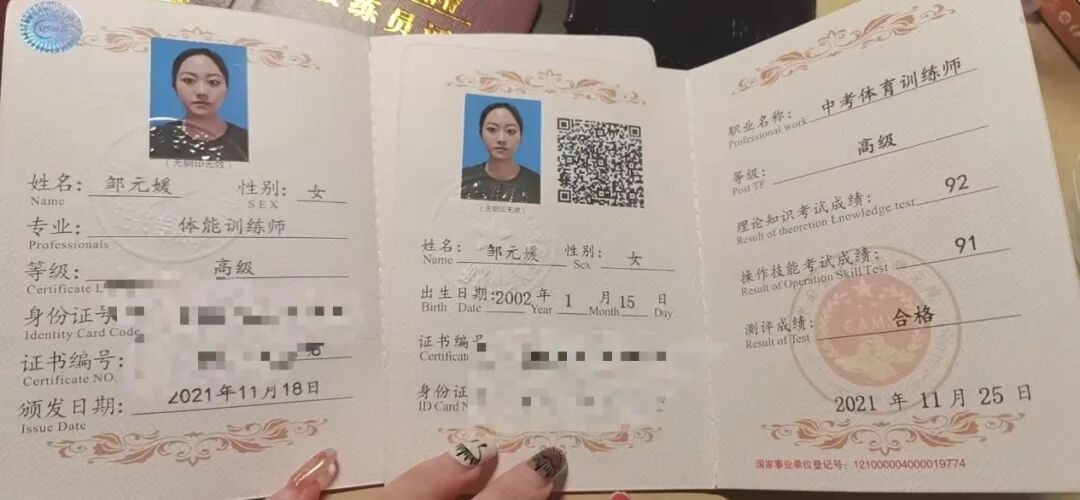 练员
(无钢印无效)
姓名: 邹元媛 性别: 女
Name SEX
专业: 体能训练师
Professionals
等级: 高级
Certificate
身份证号
Identity Card Code
证书编号:
Certificate NO.
颁发日期: 2021年11月18日
Issue Date
(无钢印无效)
姓名: 邹元媛 性别: 女
Name Sex
出生日期: 2002 年 1 月 15 日
Birth Date Year Month Day
证书编号
Certificate
身份证
ID Card
职业名称: 中考体育训练师
Professional work
等级: 高级
Post TF
理论知识考试成绩: 92
Result of theoretion Lnowledge test
操作技能考试成绩: 91
Result of Operation Skill Test
测评成绩: 合格
Result of Test
2021 年 11 月 25 日
国家事业单位登记号: 121000004000019774